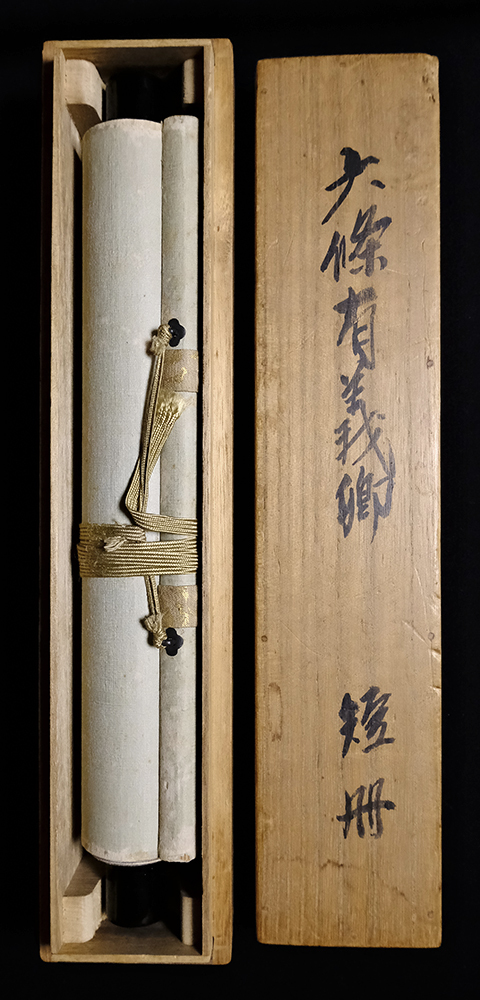 六條有義卿 短冊